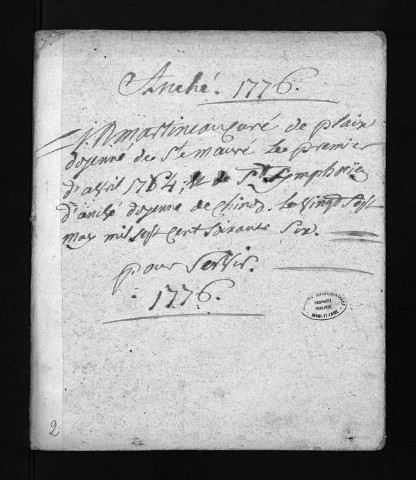 Anché. 1776.
J. R martineau curé de plain
doyenné de Ste maure le premier
d'avril 1764. et de St. Symphorien
d'anché doyenné de chinon. le vingt sept
may mil sept cent soixante six.
pour servir.
1776.
PROPRIÉTÉ
PUBLIQUE
INDRE-ET-LOIRE
2